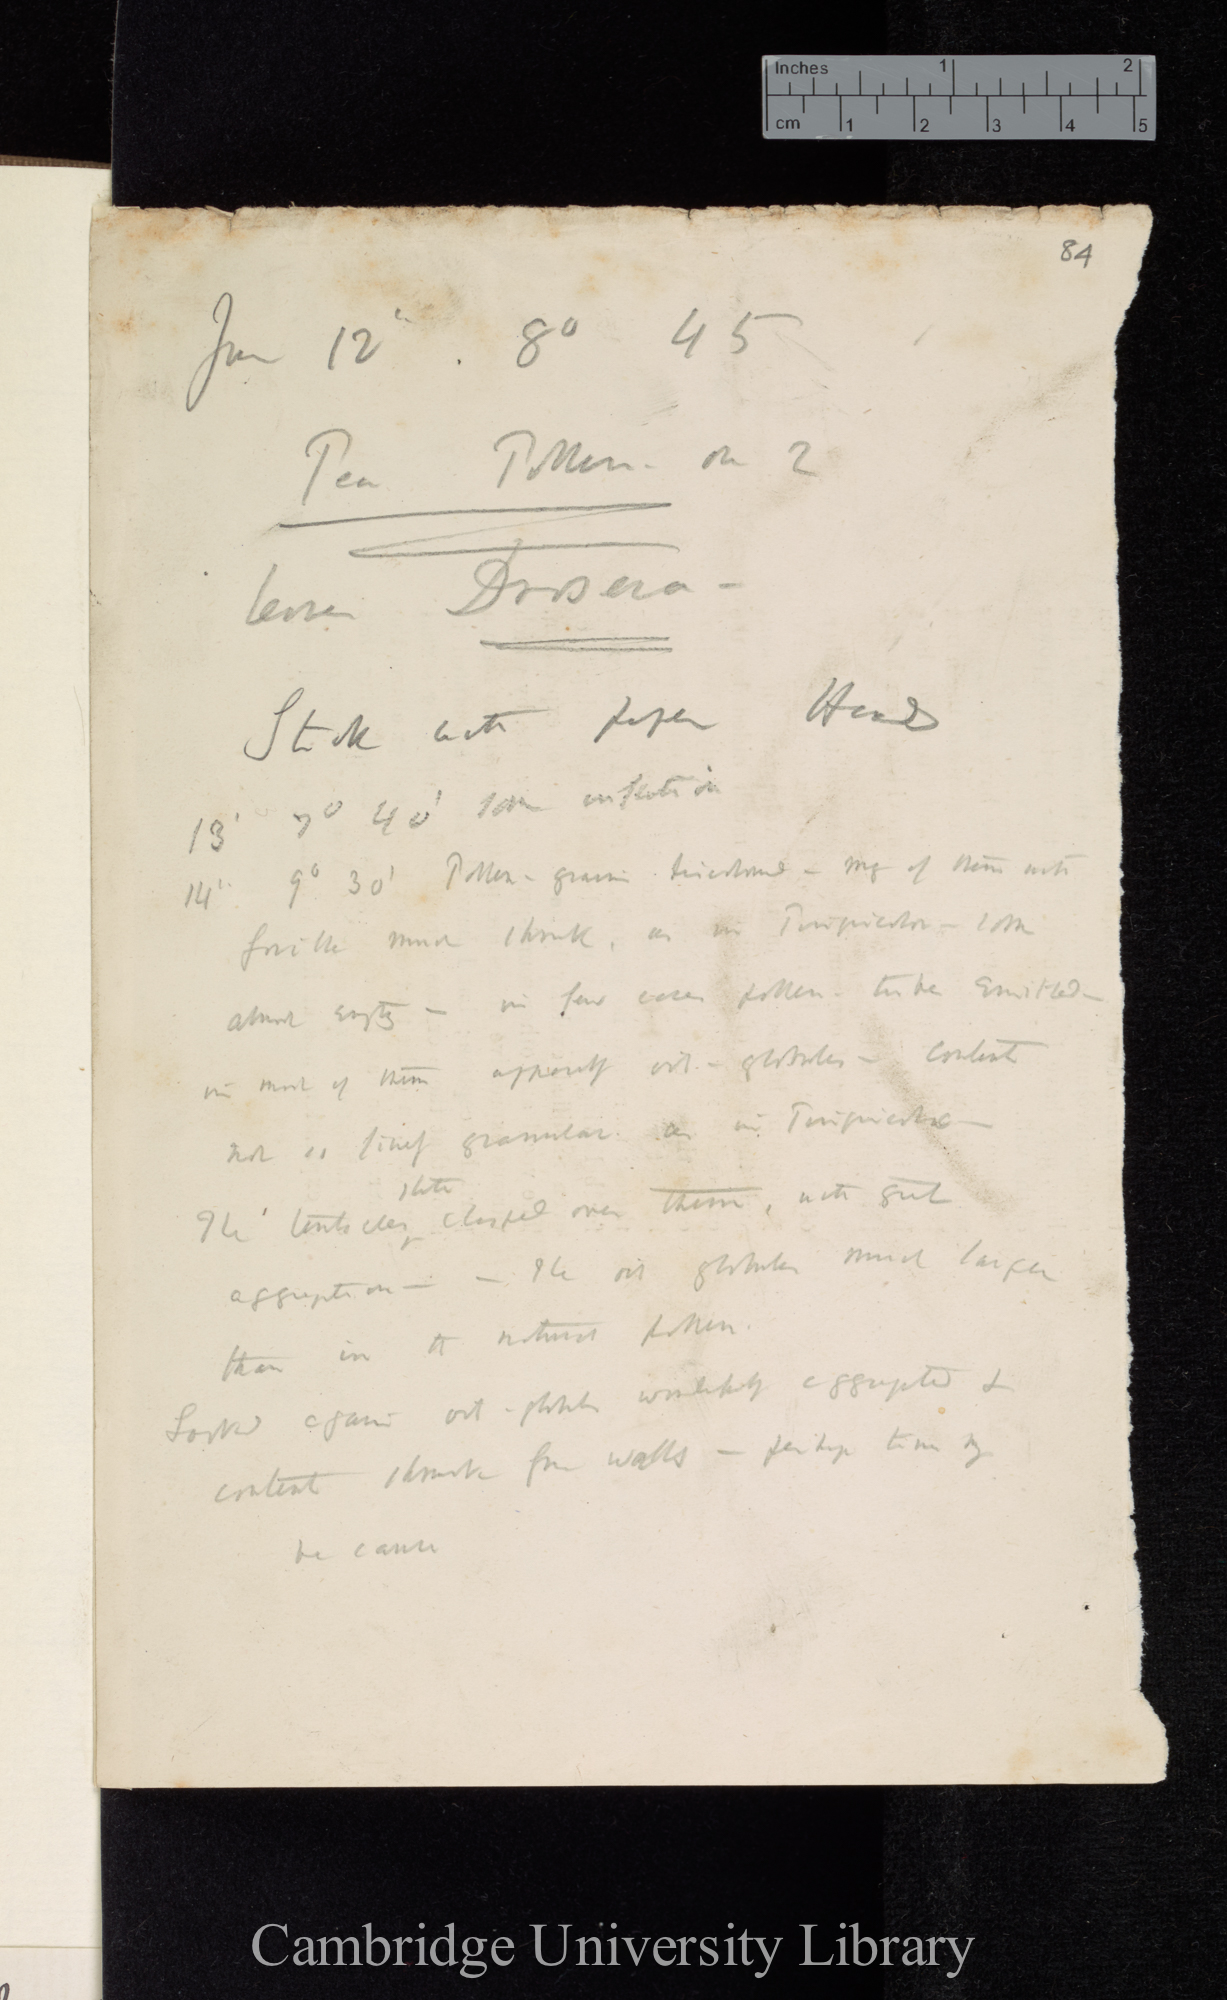 Inches 1 2
cm 1 2 3 4 5
84
Jun 12' . 8° 45
Pea Pollen - on 2
leaves Drosera -
Stick with paper Head
13' 7° 40' some inflection
14' 9° 30' Pollen - grains - of them with
much shrunk, as in Pinguicola - some
almost empty - in few cases pollen - tubes emitted -
in most of them apparently oil - globules - contents
not so finely granular as in Pinguicola -
The tentacles clasped over them, with great
aggregation - - The oil globules much larger
than in natural pollen.
Looked again oil - globules aggregated &
contents shrunk from walls - perhaps time may
be cause
Cambridge University Library